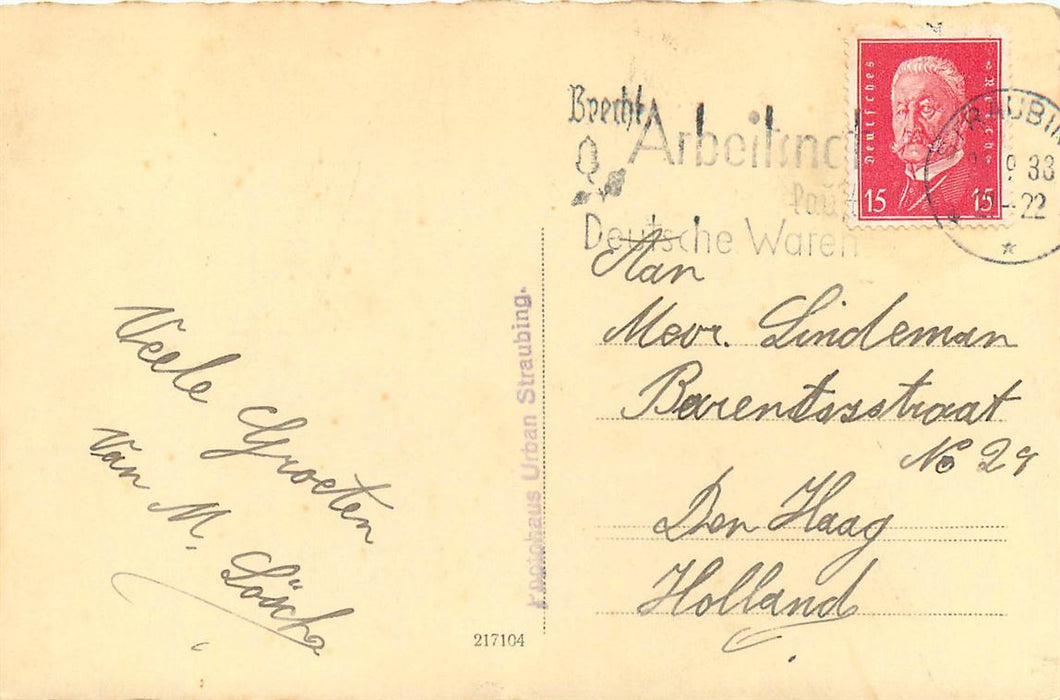 Brecht
Arbeitsnot
kauft
Deutsche Waren
Deutsches Reich
15 15
STRAUBING
9 33
22
Aan
Mevr. Lindeman
Barentszstraat
No 29
Den Haag
Holland
Veele Groeten
Van M. Lösch
Photohaus Urban Straubing.
217104